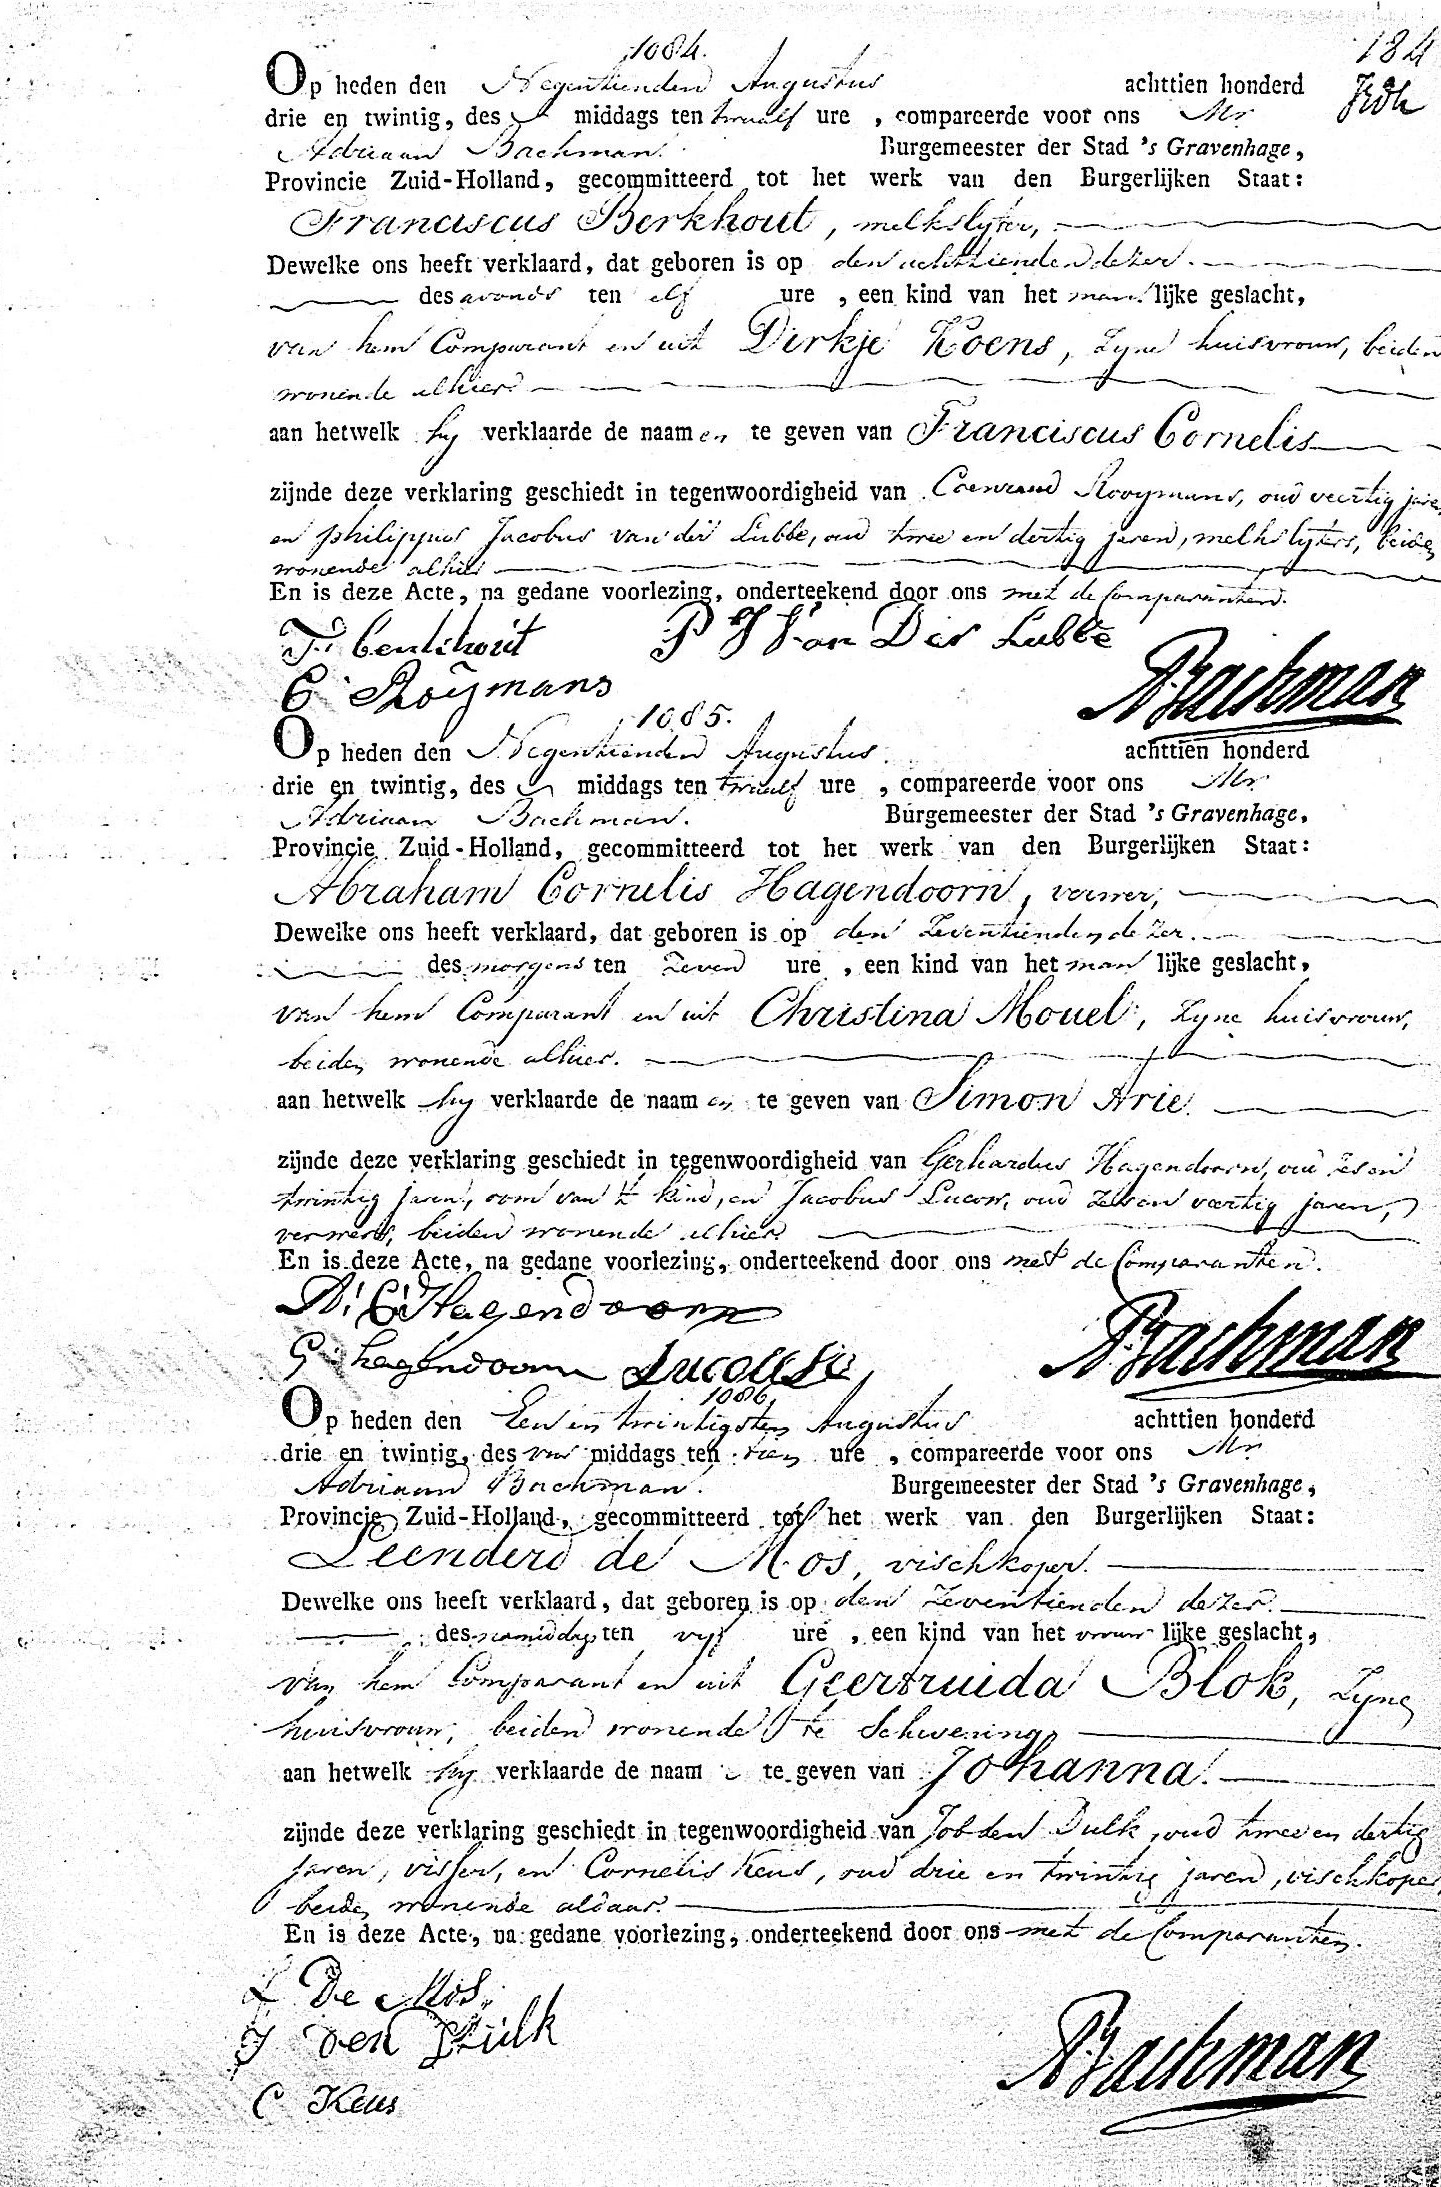 1084.
184
Op heden den Negentienden Augustus achttien honderd
drie en twintig, des middags ten twaalf ure , compareerde voor ons Mr
Adriaan Bachman. Burgemeester der Stad 's Gravenhage,
Provincie Zuid-Holland, gecommitteerd tot het werk van den Burgerlijken Staat:
Franciscus Berkhout, melkslyter,
Dewelke ons heeft verklaard, dat geboren is op den achttienden dezer.
des avonds ten elf ure , een kind van het man lijke geslacht,
van hem Comparant en uit Dirkje Koens, zyne huisvrouw, beiden
wonende alhier
aan hetwelk hy verklaarde de naam en te geven van Franciscus Cornelis
zijnde deze verklaring geschiedt in tegenwoordigheid van Coenraad Rooymans, oud veertig jaren,
en philippus Jacobus van der Lubbe, oud twee en dertig jaren, melkslyters, beiden
wonende alhier
En is deze Acte, na gedane voorlezing, onderteekend door ons met de Comparanten.
F. berkhout P J Van Der Lubbe
C. Roijmans ABachman
1085.
Op heden den Negentienden Augustus achttien honderd
drie en twintig, des middags ten twaalf ure , compareerde voor ons Mr
Adriaan Bachman. Burgemeester der Stad 's Gravenhage,
Provincie Zuid-Holland, gecommitteerd tot het werk van den Burgerlijken Staat:
Abraham Cornelis Hagendoorn, verwer,
Dewelke ons heeft verklaard, dat geboren is op den Zeventienden dezer.
des morgens ten Zeven ure , een kind van het man lijke geslacht,
van hem Comparant en uit Christina Mouel, zyne huisvrouw,
beiden wonende alhier.
aan hetwelk hy verklaarde de naam en te geven van Simon Arie.
zijnde deze verklaring geschiedt in tegenwoordigheid van Gerhardus Hagendoorn, oud zes en
twintig jaren, oom van 't kind, en Jacobus Lucow, oud zes en veertig jaren,
verwers, beiden wonende alhier
En is deze Acte, na gedane voorlezing, onderteekend door ons met de Comparanten.
A: C: Hagendoorn
G: hagendoorn ABachman
1086.
Op heden den Een en twintigsten Augustus achttien honderd
drie en twintig, des voor middags ten tien ure , compareerde voor ons Mr
Adriaan Bachman. Burgemeester der Stad 's Gravenhage,
Provincie Zuid-Holland, gecommitteerd tot het werk van den Burgerlijken Staat:
Leenderd de Mos, vischkoper.
Dewelke ons heeft verklaard, dat geboren is op den Zeventienden dezer.
des namiddags ten vyf ure , een kind van het vrouw lijke geslacht,
van hem Comparant en uit Geertruida Blok, zyne
huisvrouw, beiden wonende te Schevening
aan hetwelk hy verklaarde de naam te geven van Johanna.
zijnde deze verklaring geschiedt in tegenwoordigheid van Job den Dulk, oud twee en dertig
jaren, visser, en Cornelis Keus, oud drie en twintig jaren, vischkoper,
beiden wonende aldaar.
En is deze Acte, na gedane voorlezing, onderteekend door ons met de Comparanten.
L De Mos.
J den Dulk
C Keus ABachman